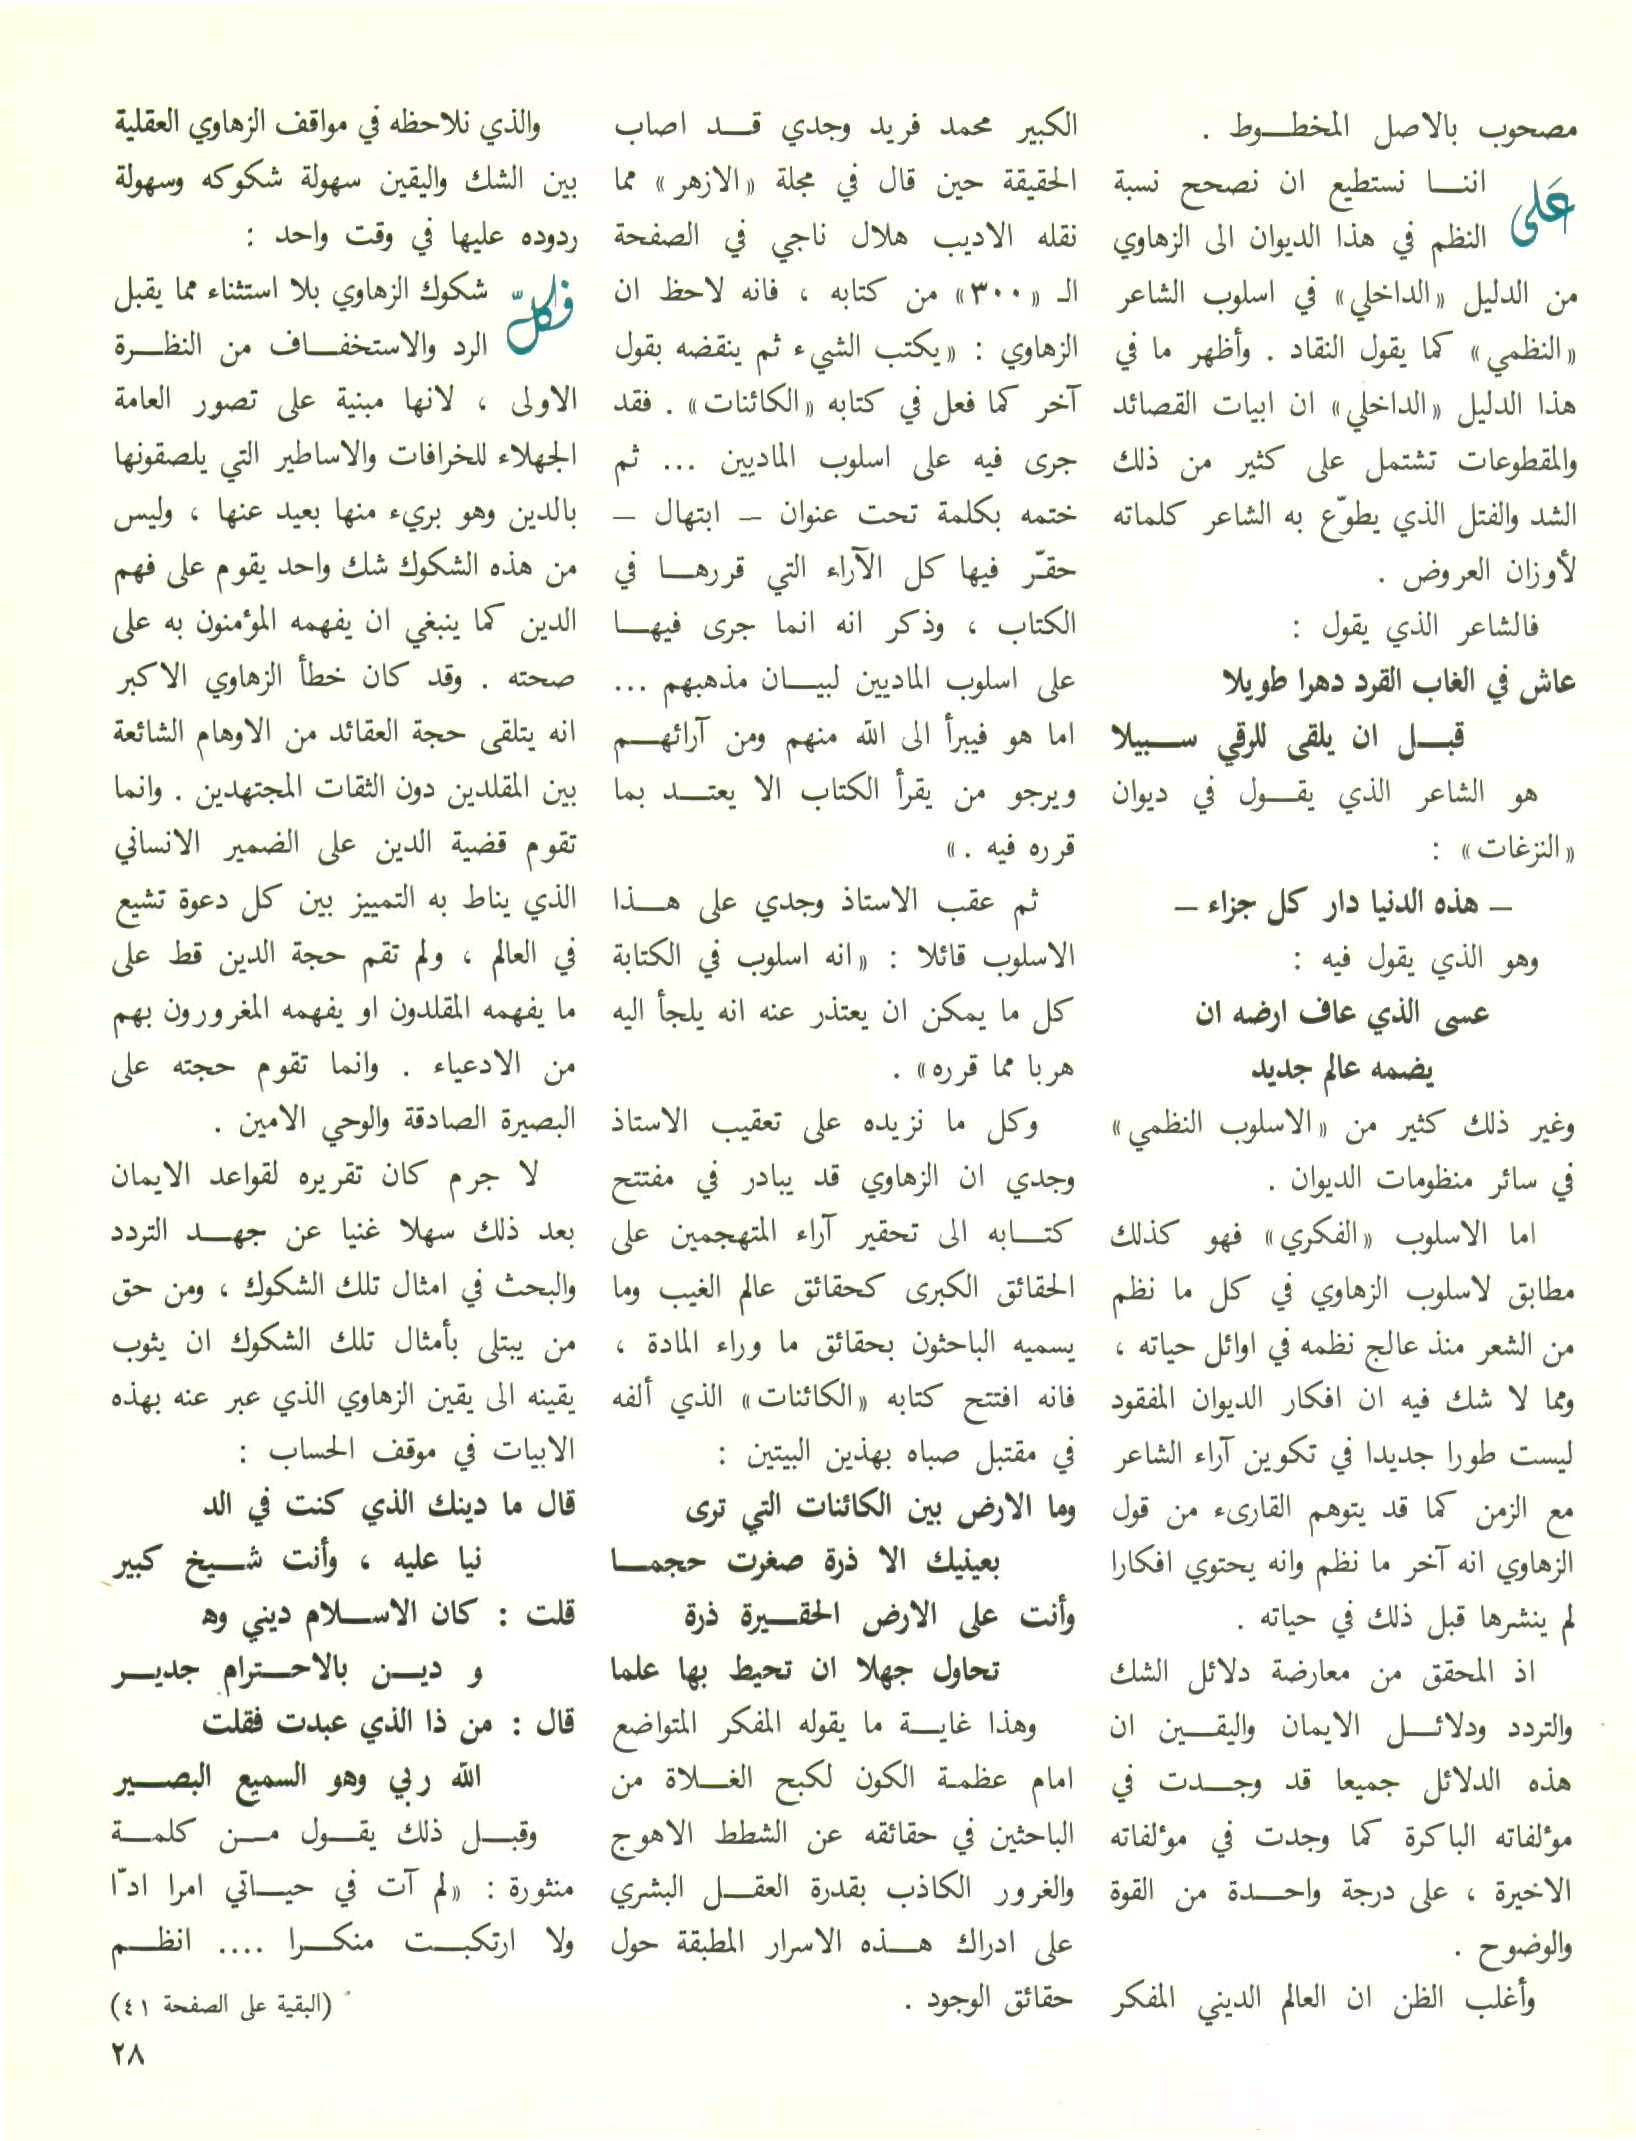 مصحوب بالاصل المخطـــوط .
على اننـــا نستطيع ان نصحح نسبة
النظم في هذا الديوان الى الزهاوي
من الدليل «الداخلي» في اسلوب الشاعر
«النظمي» كما يقول النقاد . وأظهر ما في
هذا الدليل «الداخلي» ان ابيات القصائد
والمقطوعات تشتمل على كثير من ذلك
الشد والفتل الذي يطوّع به الشاعر كلماته
لأوزان العروض .
فالشاعر الذي يقول :
عاش في الغاب القرد دهرا طويلا
قبـــل ان يلقى للرقي ســـبيلا
هو الشاعر الذي يقـــول في ديوان
«النزغات» :
– هذه الدنيا دار كل جزاء –
وهو الذي يقول فيه :
عسى الذي عاف ارضه ان
يضمه عالم جديد
وغير ذلك كثير من «الاسلوب النظمي»
في سائر منظومات الديوان .
اما الاسلوب «الفكري» فهو كذلك
مطابق لاسلوب الزهاوي في كل ما نظم
من الشعر منذ عالج نظمه في اوائل حياته ،
ومما لا شك فيه ان افكار الديوان المفقود
ليست طورا جديدا في تكوين آراء الشاعر
مع الزمن كما قد يتوهم القارىء من قول
الزهاوي انه آخر ما نظم وانه يحتوي افكارا
لم ينشرها قبل ذلك في حياته .
اذ المحقق من معارضة دلائل الشك
والتردد ودلائـــل الايمان واليقـــين ان
هذه الدلائل جميعا قد وجـــدت في
مؤلفاته الباكرة كما وجدت في مؤلفاته
الاخيرة ، على درجة واحـــدة من القوة
والوضوح .
وأغلب الظن ان العالم الديني المفكر
الكبير محمد فريد وجدي قـــد اصاب
الحقيقة حين قال في مجلة «الازهر» مما
نقله الاديب هلال ناجي في الصفحة
الـ «٣٠٠» من كتابه ، فانه لاحظ ان
الزهاوي : «يكتب الشيء ثم ينقضه بقول
آخر كما فعل في كتابه «الكائنات» . فقد
جرى فيه على اسلوب الماديين ... ثم
ختمه بكلمة تحت عنوان – ابتهال –
حقّر فيها كل الآراء التي قررهـــا في
الكتاب ، وذكر انه انما جرى فيهـــا
على اسلوب الماديين لبيـــان مذهبهم ...
اما هو فيبرأ الى الله منهم ومن آرائهـــم
ويرجو من يقرأ الكتاب الا يعتـــد بما
قرره فيه .»
ثم عقب الاستاذ وجدي على هـــذا
الاسلوب قائلا : «انه اسلوب في الكتابة
كل ما يمكن ان يعتذر عنه انه يلجأ اليه
هربا مما قرره» .
وكل ما نزيده على تعقيب الاستاذ
وجدي ان الزهاوي قد يبادر في مفتتح
كتـــابه الى تحقير آراء المتهجمين على
الحقائق الكبرى كحقائق عالم الغيب وما
يسميه الباحثون بحقائق ما وراء المادة ،
فانه افتتح كتابه «الكائنات» الذي ألفه
في مقتبل صباه بهذين البيتين :
وما الارض بين الكائنات التي ترى
بعينيك الا ذرة صغرت حجمـــا
وأنت على الارض الحقـــيرة ذرة
تحاول جهلا ان تحيط بها علما
وهذا غايـــة ما يقوله المفكر المتواضع
امام عظمة الكون لكبح الغـــلاة من
الباحثين في حقائقه عن الشطط الاهوج
والغرور الكاذب بقدرة العقـــل البشري
على ادراك هـــذه الاسرار المطبقة حول
حقائق الوجود .
والذي نلاحظه في مواقف الزهاوي العقلية
بين الشك واليقين سهولة شكوكه وسهولة
ردوده عليها في وقت واحد :
فكلّ شكوك الزهاوي بلا استثناء مما يقبل
الرد والاستخفـــاف من النظـــرة
الاولى ، لانها مبنية على تصور العامة
الجهلاء للخرافات والاساطير التي يلصقونها
بالدين وهو بريء منها بعيد عنها ، وليس
من هذه الشكوك شك واحد يقوم على فهم
الدين كما ينبغي ان يفهمه المؤمنون به على
صحته . وقد كان خطأ الزهاوي الاكبر
انه يتلقى حجة العقائد من الاوهام الشائعة
بين المقلدين دون الثقات المجتهدين . وانما
تقوم قضية الدين على الضمير الانساني
الذي يناط به التمييز بين كل دعوة تشيع
في العالم ، ولم تقم حجة الدين قط على
ما يفهمه المقلدون او يفهمه المغرورون بهم
من الادعياء . وانما تقوم حجته على
البصيرة الصادقة والوحي الامين .
لا جرم كان تقريره لقواعد الايمان
بعد ذلك سهلا غنيا عن جهـــد التردد
والبحث في امثال تلك الشكوك ، ومن حق
من يبتلى بأمثال تلك الشكوك ان يثوب
يقينه الى يقين الزهاوي الذي عبر عنه بهذه
الابيات في موقف الحساب :
قال ما دينك الذي كنت في الد
نيا عليه ، وأنت شـــيخ كبير
قلت : كان الاســـلام ديني وه
و ديـــن بالاحـــترام جديـــر
قال : من ذا الذي عبدت فقلت
الله ربي وهو السميع البصـــير
وقبـــل ذلك يقـــول مـــن كلمـــة
منثورة : «لم آت في حيـــاتي امرا ادّا
ولا ارتكبـــت منكـــرا .... انظـــم
(البقية على الصفحة ٤١)
٢٨